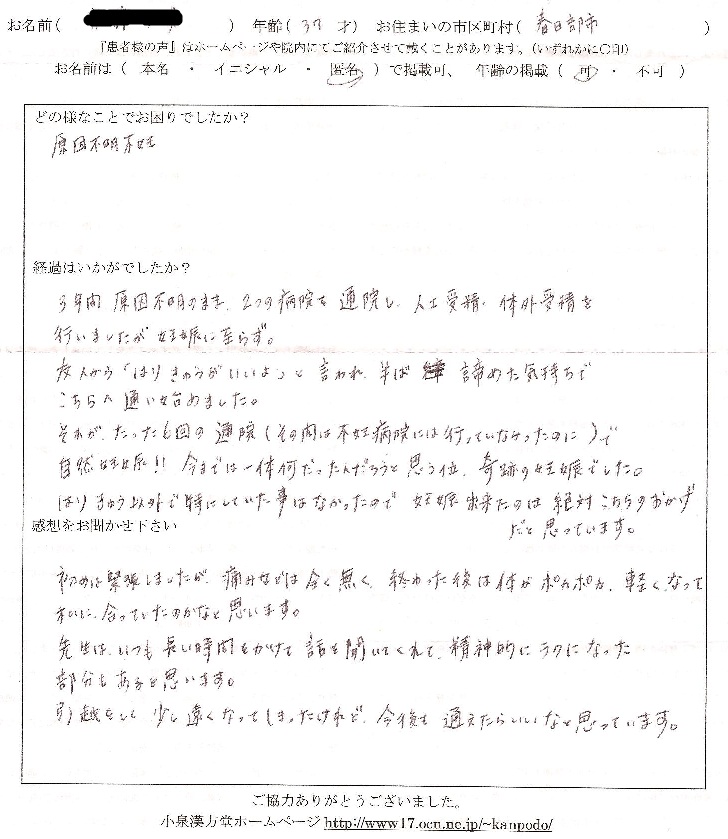 お名前(　　　) 年齢(37才) お住まいの市区町村(春日部市)
『患者様の声』はホームページや院内にてご紹介させて戴くことがあります。(いずれかに○印)
お名前は( 本名 ・ イニシャル ・ 匿名 )で掲載可、 年齢の掲載( 可 ・ 不可 )
どの様なことでお困りでしたか?
原因不明不妊
経過はいかがでしたか?
3年間 原因不明のまま、2つの病院を通院し、人工受精・体外受精を
行いましたが妊娠に至らず。
友人から「はりきゅうがいいよ」と言われ、半ば 諦めた気持ちで
こちらへ通い始めました。
それが、たった6回の通院(その間は不妊病院には行っていなかったのに)で
自然妊娠!! 今までは一体何だったんだろうと思う位、奇跡の妊娠でした。
はりきゅう以外で特にしていた事はなかったので 妊娠出来たのは絶対こちらのおかげ
だと思っています。
感想をお聞かせ下さい
初めは緊張しましたが、痛みなどは全く無く、終わった後は体がポカポカ、軽くなって
私に合っていたのかなと思います。
先生は、いつも長い時間をかけて話を聞いてくれて、精神的にラクになった
部分もあると思います。
引越をして少し遠くなってしまったけれど、今後も通えたらいいなと思っています。
ご協力ありがとうございました。
小泉漢方堂ホームページ http://www17.ocn.ne.jp/~kanpodo/